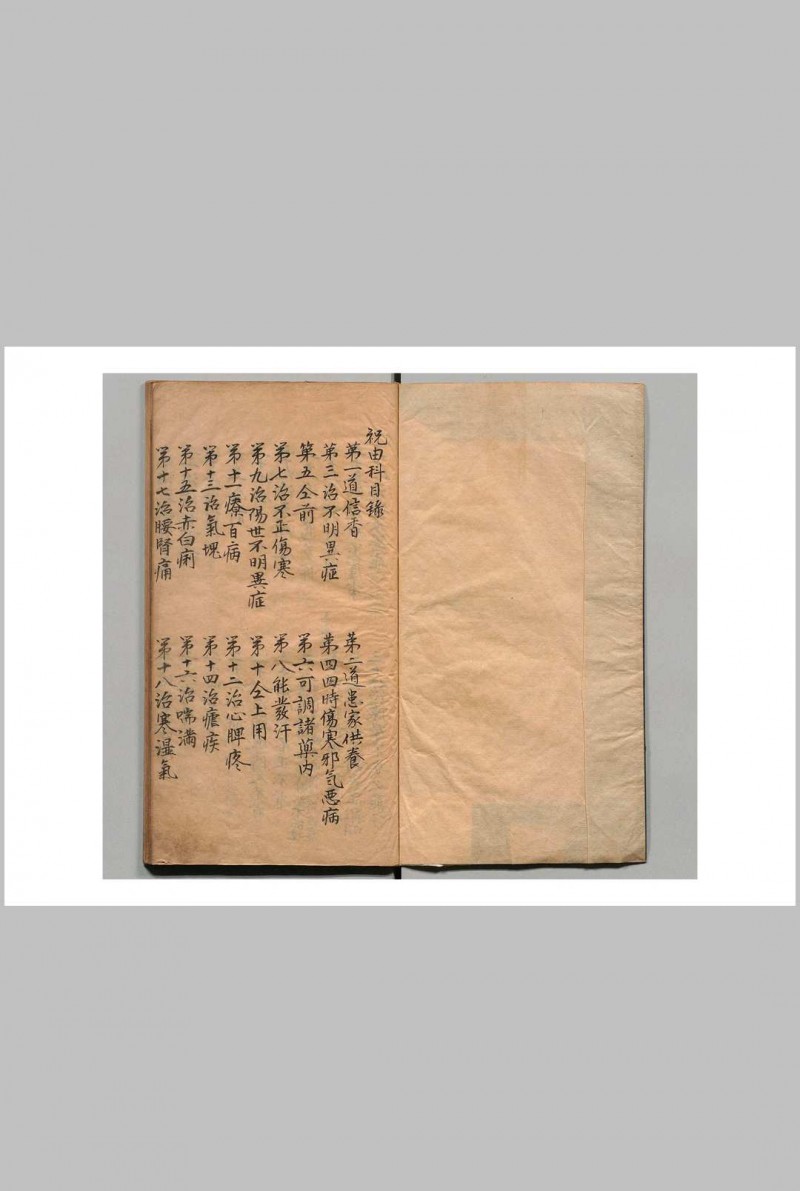 祝由科目錄
第一道信香
第二道患家供養
第三治不明異症
第四四時傷寒邪気惡病
第五仝前
第六可調諸藥內
第七治不正傷寒
第八能發汗
第九治陽世不明異症
第十仝上用
第十一療百病
第十二治心脾疼
第十三治氣塊
第十四治瘧疾
第十五治赤白痢
第十六治喘滿
第十七治腰腎痛
第十八治寒湿氣